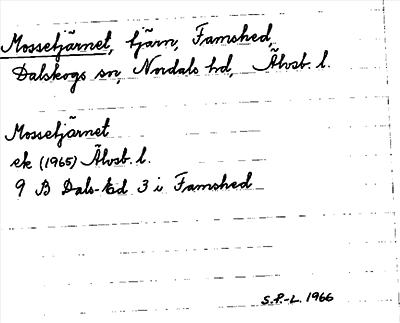 Mossetjärnet, tjärn, Famshed,
Dalskogs sn, Nordals hd, Älvsb. l.
Mossetjärnet
ek (1965) Älvsb. l.
9 B Dals-Ed 3 i Famshed
S.P.-L. 1966